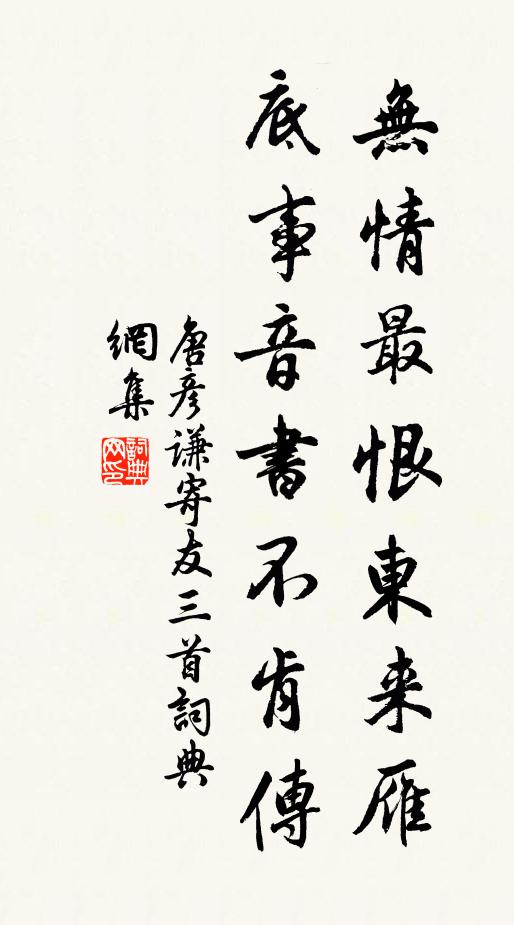 無情最恨東来雁
底事音書不肯傳
唐彥謙寄友三首詞典
網集
詞典
网印